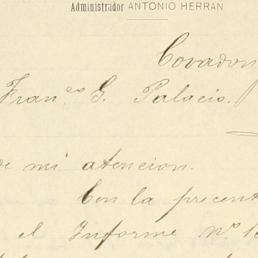 Administrador ANTONIO HERRAN
Covadon
Fran.co G. Palacio.
de mi atencion.
Con la present
el Informe nº 1